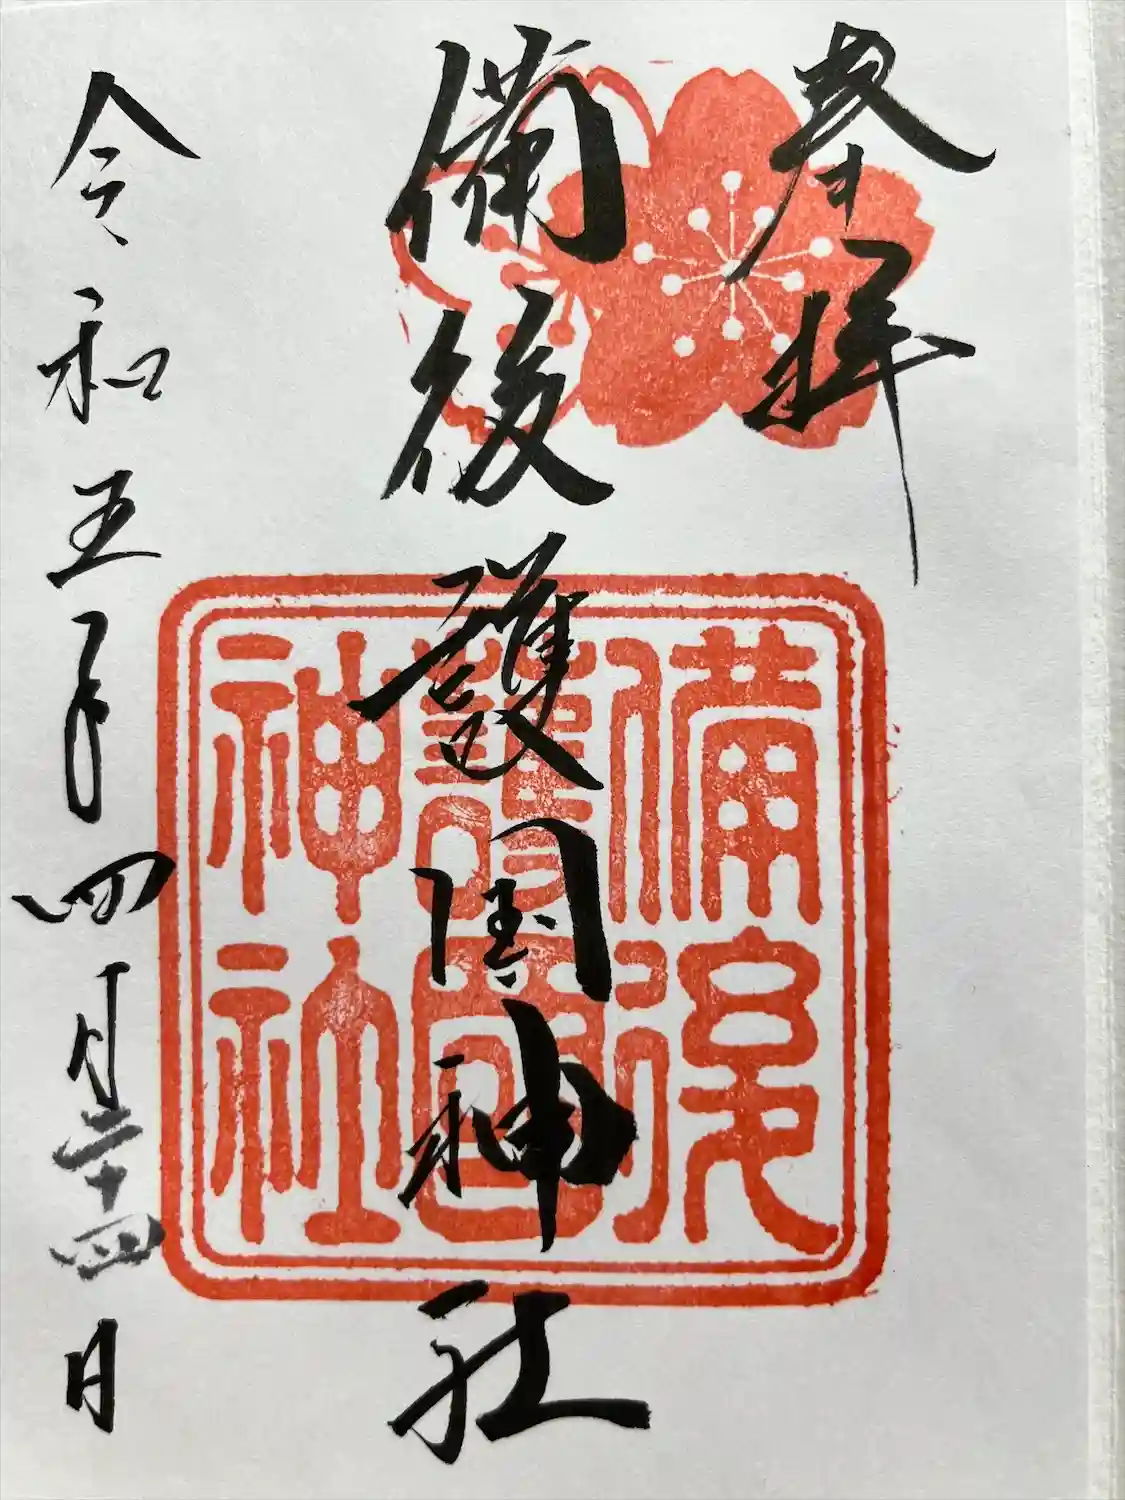 奉拝
備後護国神社
令和五年四月二十四日
備後
護國
神社